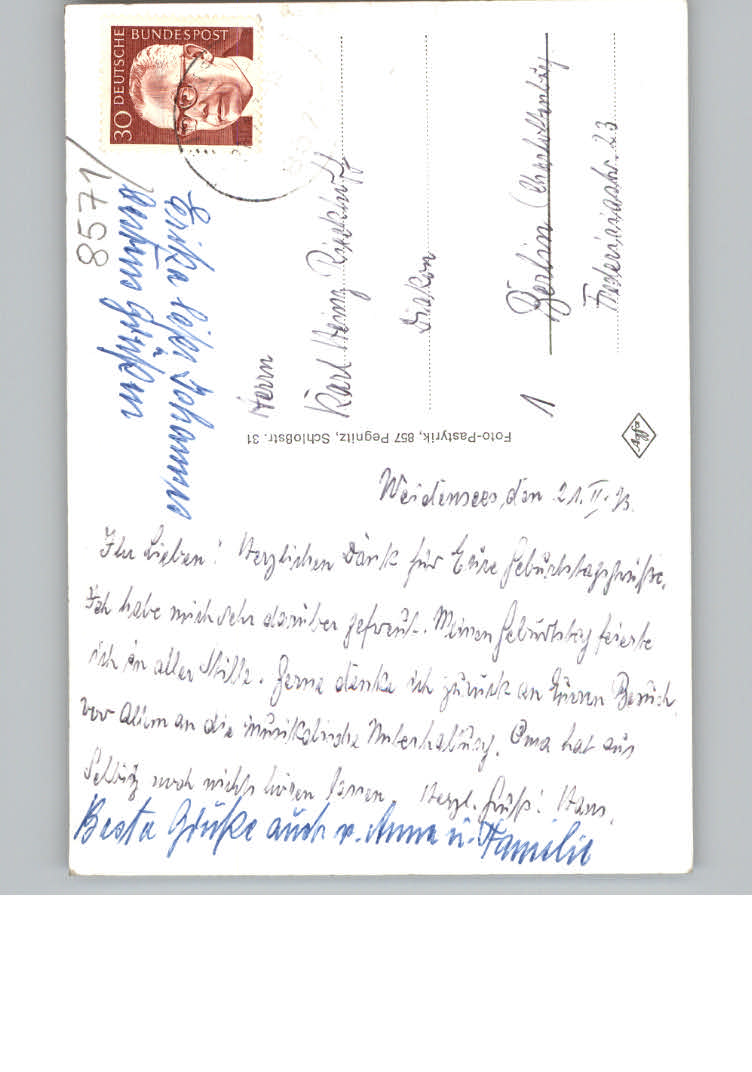 Weidensees, den 21. II. 73.
Ihr Lieben! Herzlichen Dank für Eure Geburtstagsgrüße.
Ich habe mich sehr darüber gefreut. Meinen Geburtstag feierte
ich in aller Stille. Gerne denke ich zurück an Euren Besuch,
vor Allem an die musikalische Unterhaltung. Oma hat aus
Selbitz noch nichts hören lassen. Herzl. Gruß! Hans.
Beste Grüße auch v. Anna u. Familie
DEUTSCHE BUNDESPOST
30
8571
Erika Johanna
Herrn
Karl Heinz
Diakon
1 Berlin Charlottenburg
23
Foto-Pastyrik, 857 Pegnitz, Schloßstr. 31
Agfa